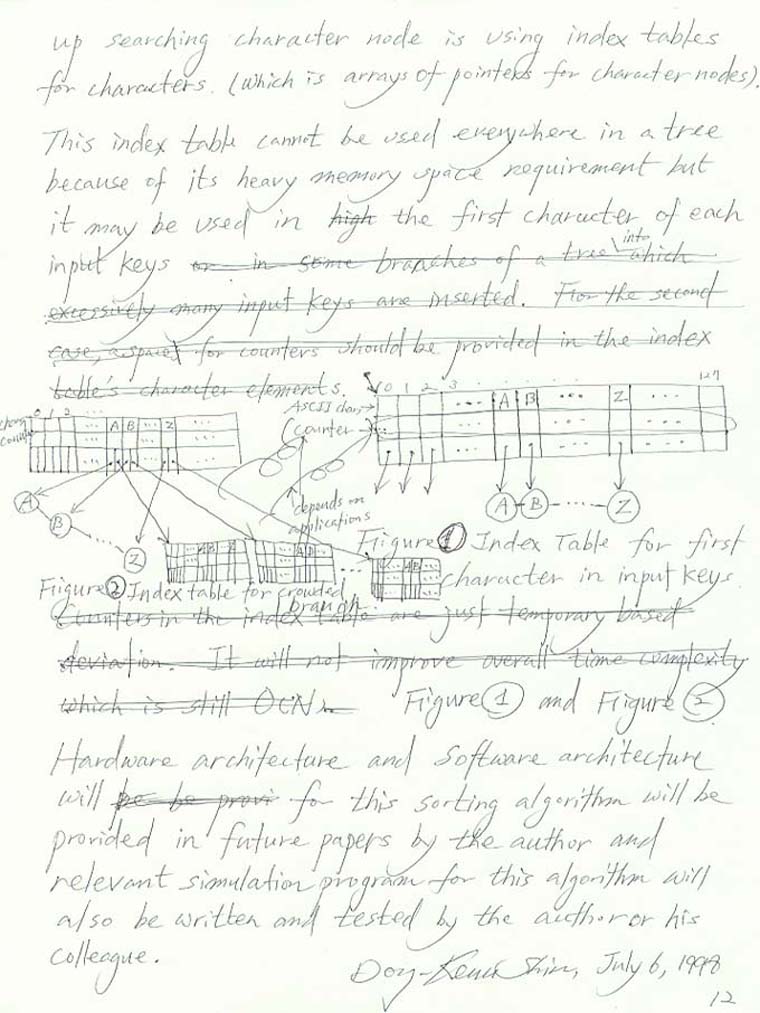 up searching character node is using index tables
for characters. (which is arrays of pointers for character nodes).
This index table cannot be used everywhere in a tree
because of its heavy memory space requirement but
it may be used in high the first character of each
input keys or in some branches of a tree into which
excessively many input keys are inserted. For the second
case, a space for counters should be provided in the index
table's character elements.
0 1 2 3 ... 127
ASCII char,
A B ... Z ...
counter
A B ... Z
depends on
applications
Figure 1 Index Table for first
character in input keys.
0 1 2 ...
A B ... Z ...
A
B
Z
A B
Figure 2 Index table for crowded
branch
Counters in the index table are just temporary based
deviation. It will not improve overall time complexity
which is still O(N)
Figure 1 and Figure 2
Hardware architecture and software architecture
will be be provi for this sorting algorithm will be
provided in future papers by the author and
relevant simulation program for this algorithm will
also be written and tested by the author or his
colleague.
July 6, 1998
12